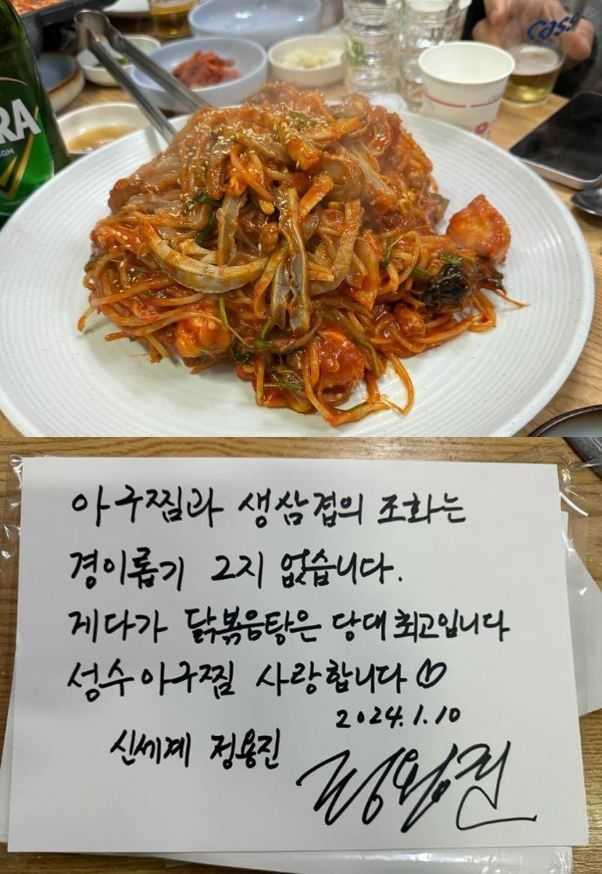 RA
Cass
아구찜과 생삼겹의 조화는
경이롭기 그지 없습니다.
게다가 닭볶음탕은 당대 최고입니다
성수아구찜 사랑합니다 ♡
2024.1.10
신세계 정용진